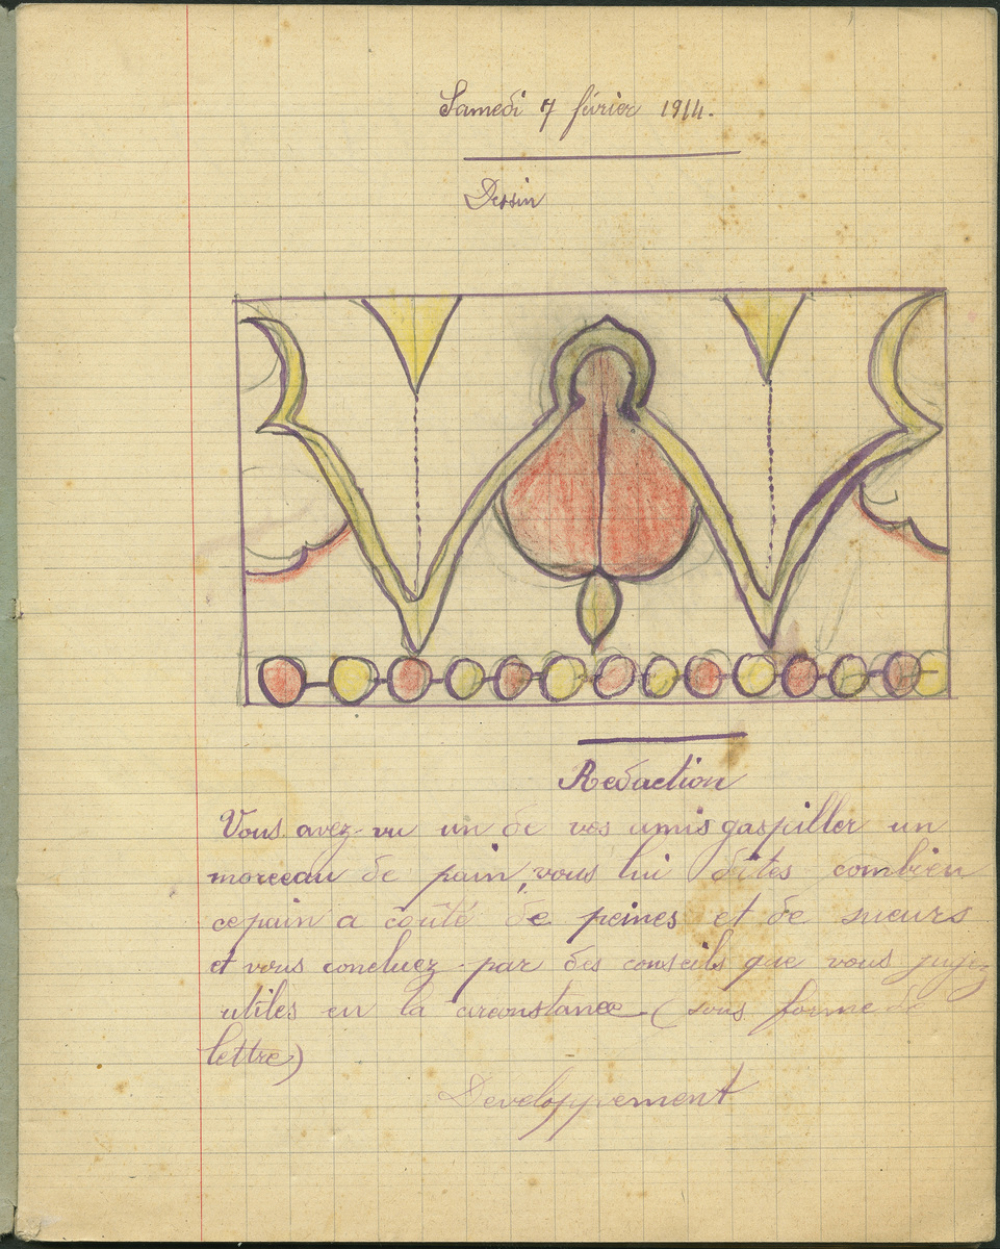 Samedi 7 février 1914.
Dessin
Redaction
Vous avez-vu un de vos amis gaspiller un
morceau de pain, vous lui dites combien
ce pain a coûté de peines et de sueurs
et vous concluez par des conseils que vous jugez
utiles en la circonstance (sous forme de
lettre)
Developpement